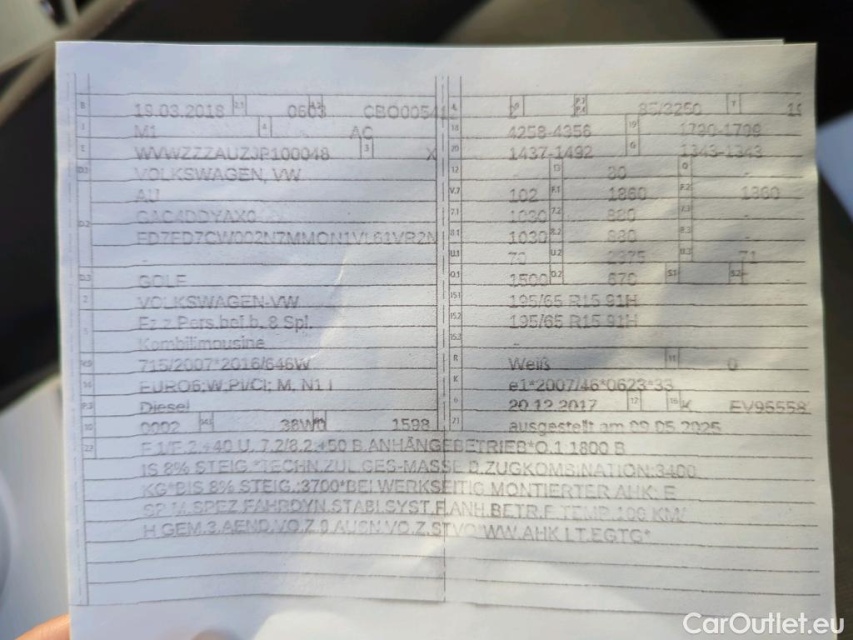 B 19.03.2018 2.1 0603 2.2 CBO005412
J M1 4 AC
E WVWZZZAUZJP100048 3 X
D.1 VOLKSWAGEN, VW
AU
D.2 GAC4DDYAX0
FD7FD7CW002N7MMON1VL61VR2N
D.3 GOLF
2 VOLKSWAGEN-VW
5 Fz.z.Pers.bef.b. 8 Spl.
Kombilimousine
V.9 715/2007*2016/646W
14 EURO6;W,PI/CI; M, N1 I
P.3 Diesel
10 0002 14.1 38W0 P.1 1598
22 F.1/F.2:+40 U. 7.2/8.2:+50 B.ANHÄNGEBETRIEB*O.1:1800 B
IS 8% STEIG.*TECHN.ZUL.GES-MASSE D.ZUGKOMBINATION:3400
KG*BIS 8% STEIG.:3700*BEI WERKSEITIG MONTIERTER AHK: E
SP M.SPEZ.FAHRDYN.STABI.SYST.F.ANH.BETR.F.TEMP.100 KM/
H GEM.3.AEND.VO.Z.9.AUSN.VO.Z.STVO*WW.AHK LT.EGTG*
L 2 9 P.2 P.4 85/3250 T
18 4258-4356 19 1790-1799
20 1437-1492 G 1343-1343
12 13 80 Q
V.7 102 F.1 1860 F.2 1860
7.1 1030 7.2 880 7.3
8.1 1030 8.2 880 8.3
U.1 U.2 U.3 71
O.1 1500 O.2 670 S.1 S.2
15.1 195/65 R15 91H
15.2 195/65 R15 91H
15.3
R Weiß 11 0
K e1*2007/46*0623*33
6 20.12.2017 17 K 16 FV95558
21 ausgestellt am 09.05.2025
CarOutlet.eu